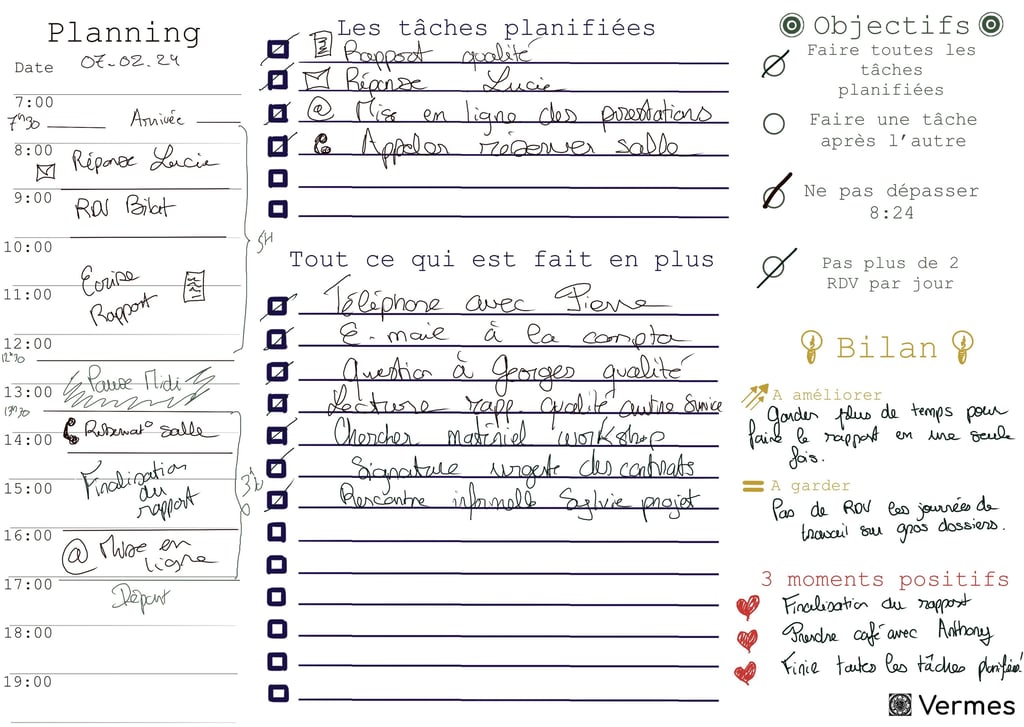 Planning
Date 07.02.24
7:00
7h30 Arrivée
8:00
Réponse Lucie
9:00
RDV Bilat
10:00
Ecrire
11:00
Rapport
12:00
12h30
5H
Pause Midi
13:00
13h30
Réservat° salle
14:00
Finalisation
du
15:00
rapport
16:00
@ Mise en
ligne
17:00
Départ
18:00
19:00
Les tâches planifiées
Rapport qualité
Réponse Lucie
@ Mise en ligne des prestations
Appeler réserver salle
Tout ce qui est fait en plus
Téléphone avec Pierre
E-mail à la compta
Question à Georges qualité
Lecture rapp. qualité autre service
Chercher matériel workshop
Signature urgente des contrats
Rencontre informelle Sylvie projet
Objectifs
Faire toutes les
tâches
planifiées
Faire une tâche
après l'autre
Ne pas dépasser
8:24
Pas plus de 2
RDV par jour
Bilan
A améliorer
Garder plus de temps pour
faire le rapport en une seule
fois.
A garder
Pas de RDV les journées de
travail sur gros dossiers.
3 moments positifs
Finalisation du rapport
Prendre café avec Anthony
Finir toutes les tâches planifiées!
Vermes